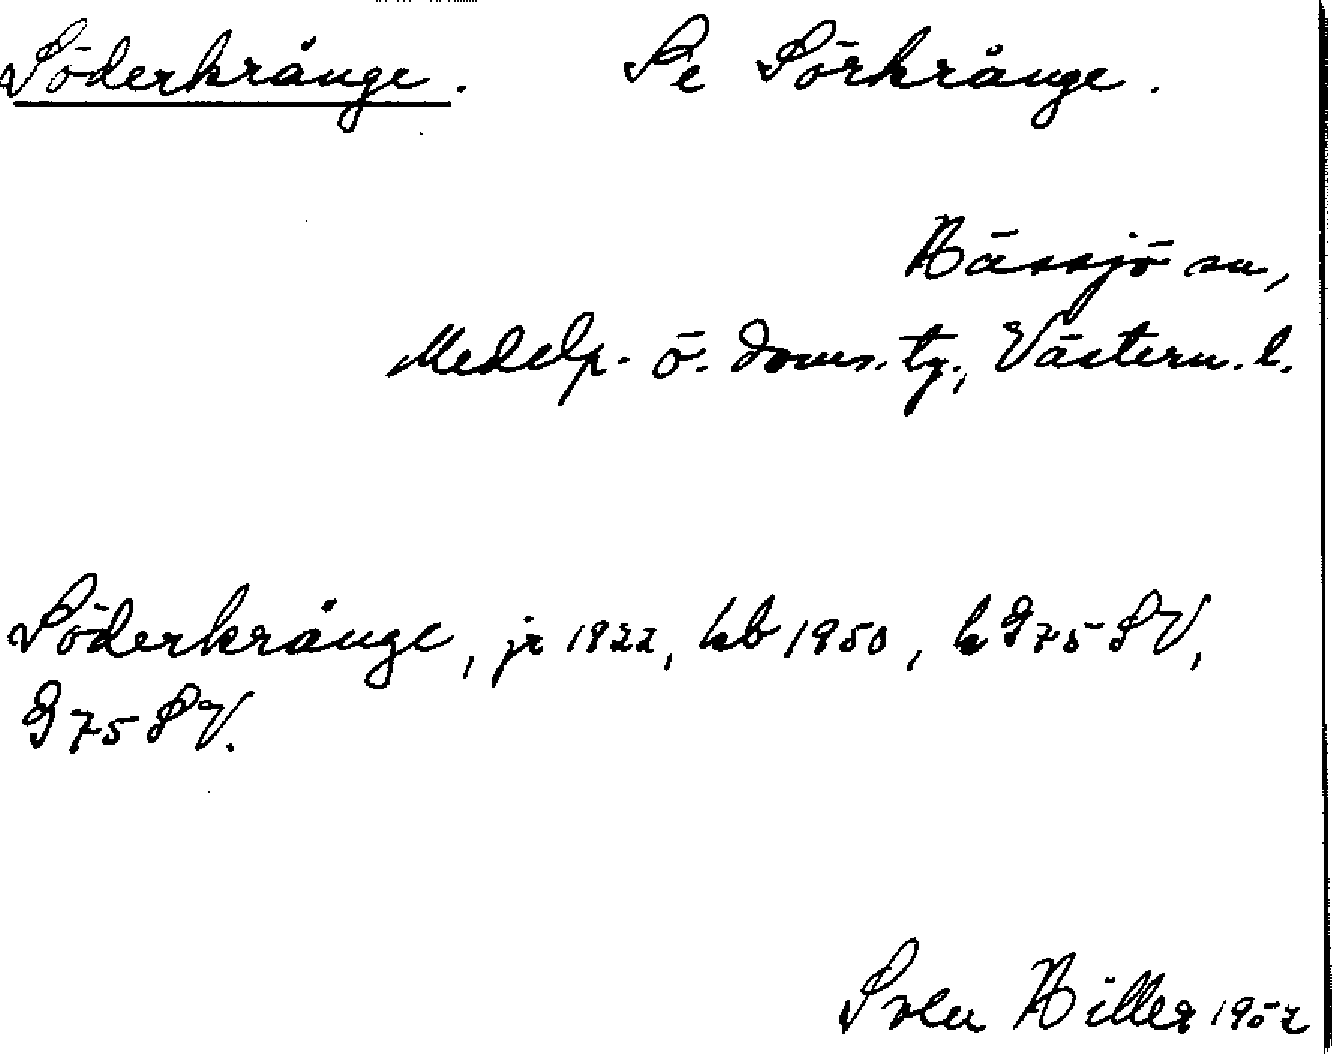 Söderkrånge. Se Sörkrånge.
Hässjö sn,
Medelp. ö. doms. tg., Västern. l.
Söderkrånge, jr 1922, hb 1950, k G75SV,
G75SV.
Sven Hiller 1952